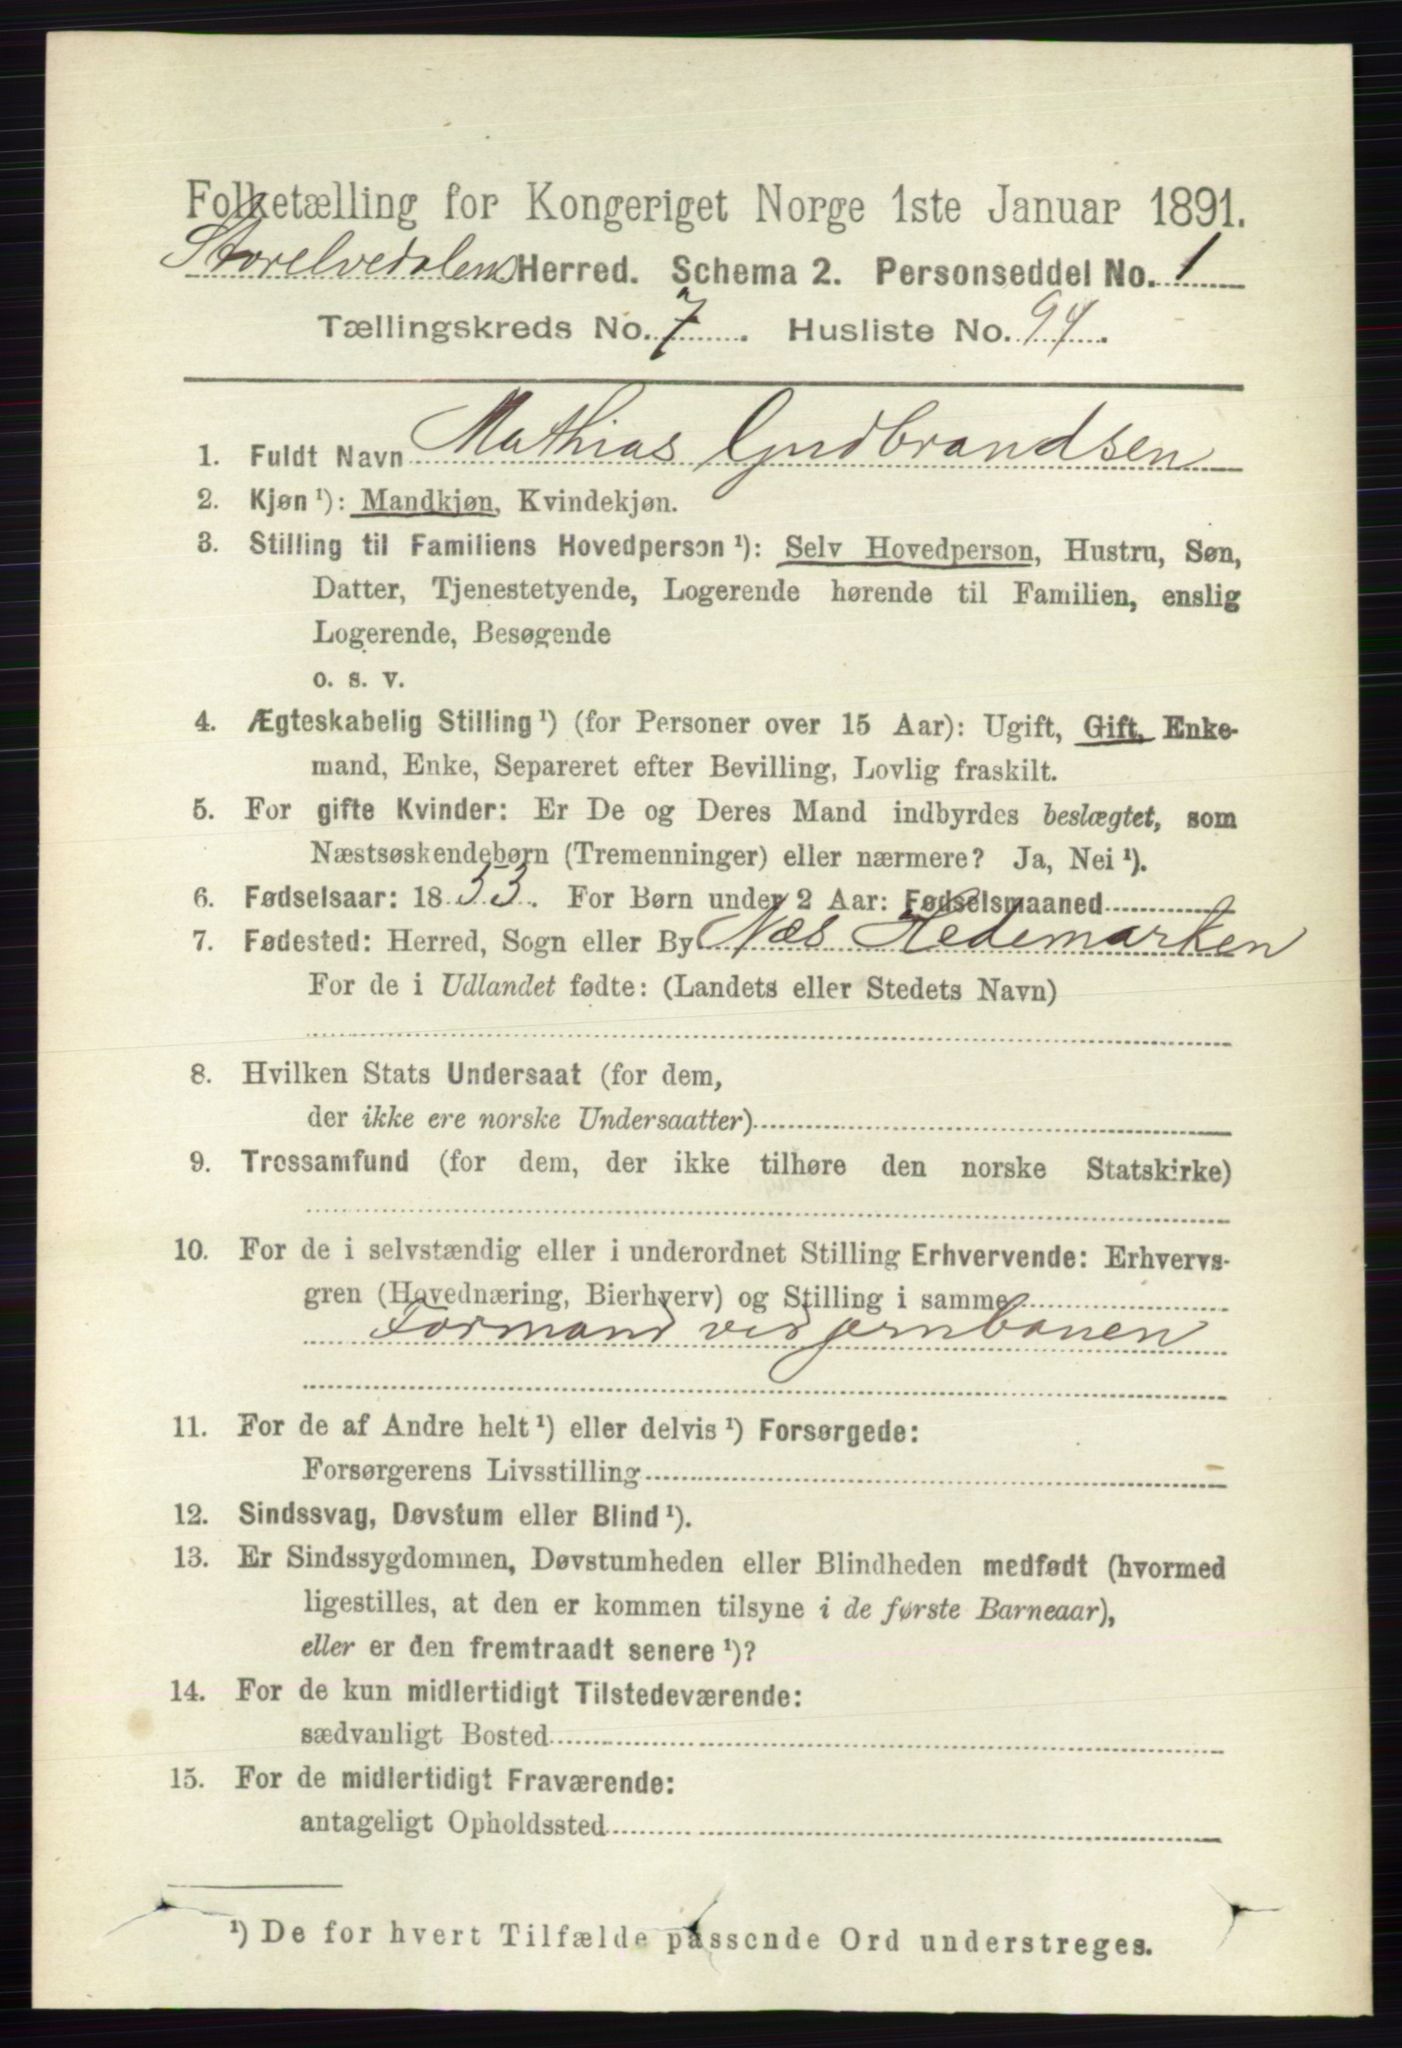 Folketælling for Kongeriget Norge 1ste Januar 1891.
Storelvedalens Herred. Schema 2. Personseddel No. 1
Tællingskreds No. 7. Husliste No. 94.
1. Fuldt Navn Mathias Gudbrandsen
2. Kjøn ¹): Mandkjøn, Kvindekjøn.
3. Stilling til Familiens Hovedperson ¹): Selv Hovedperson, Hustru, Søn,
Datter, Tjenestetyende, Logerende hørende til Familien, enslig
Logerende, Besøgende
o. s. v.
4. Ægteskabelig Stilling ¹) (for Personer over 15 Aar): Ugift, Gift, Enke-
mand, Enke, Separeret efter Bevilling, Lovlig fraskilt.
5. For gifte Kvinder: Er De og Deres Mand indbyrdes beslægtet, som
Næstsøskendebørn (Tremenninger) eller nærmere? Ja, Nei ¹).
6. Fødselsaar: 1833. For Børn under 2 Aar: Fødselsmaaned
7. Fødested: Herred, Sogn eller By Næs Hedemarken
For de i Udlandet fødte: (Landets eller Stedets Navn)
8. Hvilken Stats Undersaat (for dem,
der ikke ere norske Undersaatter)
9. Trossamfund (for dem, der ikke tilhøre den norske Statskirke)
10. For de i selvstændig eller i underordnet Stilling Erhvervende: Erhvervs-
gren (Hovednæring, Bierhverv) og Stilling i samme
Formand ved jernbanen
11. For de af Andre helt ¹) eller delvis ¹) Forsørgede:
Forsørgerens Livsstilling
12. Sindssvag, Døvstum eller Blind ¹).
13. Er Sindssygdommen, Døvstumheden eller Blindheden medfødt (hvormed
ligestilles, at den er kommen tilsyne i de første Barneaar),
eller er den fremtraadt senere ¹)?
14. For de kun midlertidigt Tilstedeværende:
sædvanligt Bosted
15. For de midlertidigt Fraværende:
antageligt Opholdssted
¹) De for hvert Tilfælde passende Ord understreges.